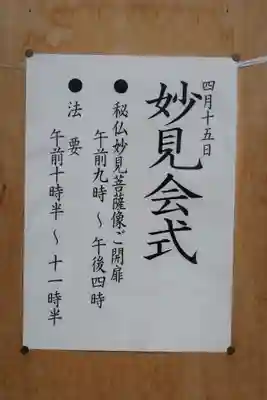 四月十五日
妙見会式
●秘仏妙見菩薩像ご開扉
午前九時～午後四時
●法要
午前十時半～十一時半